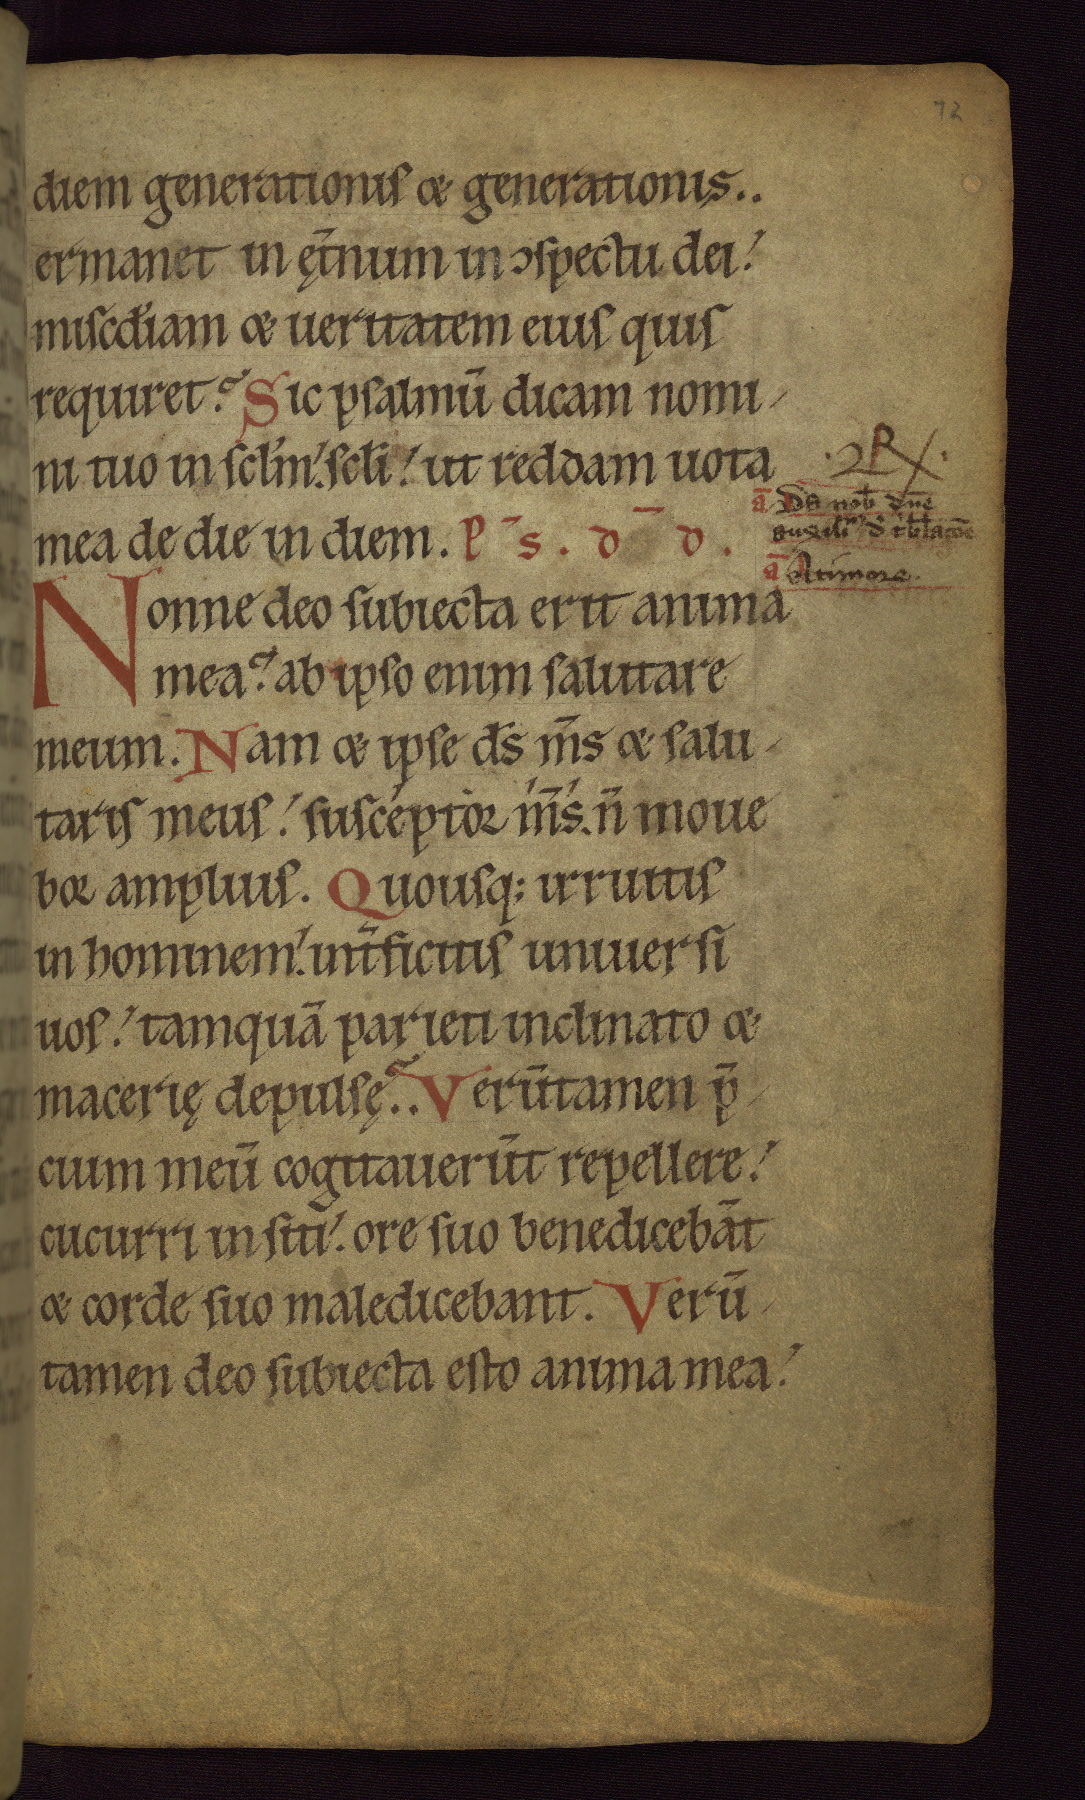 72
diem generationis & generationis..
ermanet in ęt̄num in ɔspectu dei!
misc̄diam & ueritatem eius quis
requiret? Sic psalmū dicam nomi-
ni tuo in sc̄lm sc̄li! ut reddam uota
mea de die in diem. P̄ S. D̄ D.
Nonne deo subiecta erit anima
mea? ab ipso enim salutare
meum. Nam & ipse d̄s m̄s & salu-
taris meus! susceptor m̄s. n̄ moue
bor amplius. Quousq; irruitis
in hominem! int̄ficitis uniuersi
uos! tamquā parieti inclinato &
macerię depulsę? Verūtamen p̄-
cium meū cogitauerūt repellere!
cucurri in siti! ore suo benedicebāt
& corde suo maledicebant. Verū-
tamen deo subiecta esto anima mea!
ā Da nob̄ dn̄e
auxiliū d̄ t̄bl̄atōe
ā A timore.